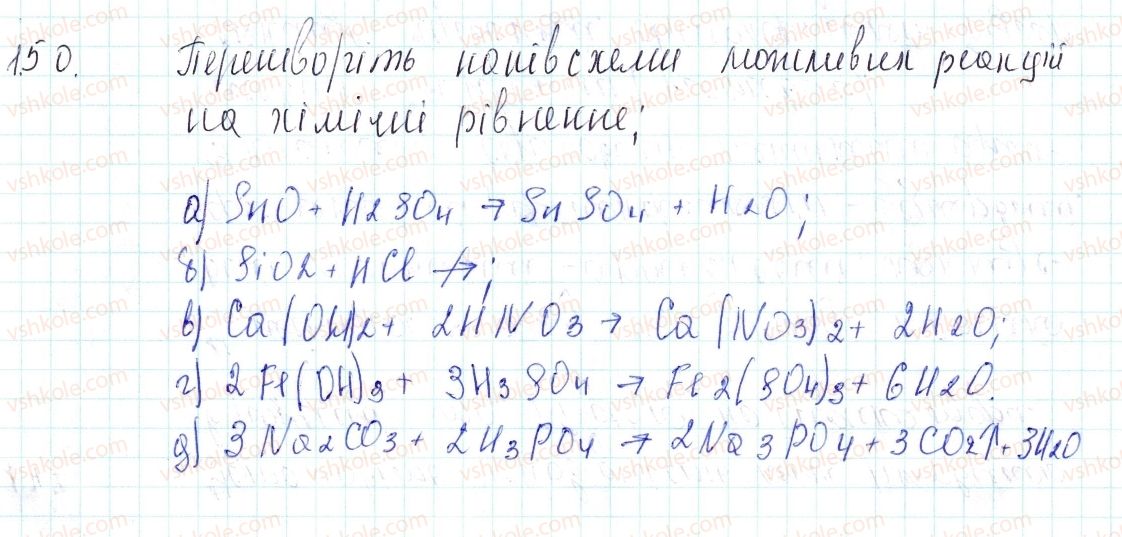 150. Перетворіть напівсхеми можливих реакцій
на хімічні рівнення;
а) SnO + H2SO4 → SnSO4 + H2O;
б) SiO2 + HCl ↛;
в) Ca(OH)2 + 2HNO3 → Ca(NO3)2 + 2H2O;
г) 2Fe(OH)3 + 3H3SO4 → Fe2(SO4)3 + 6H2O.
д) 3Na2CO3 + 2H3PO4 → 2Na3PO4 + 3CO2↑ + 3H2O